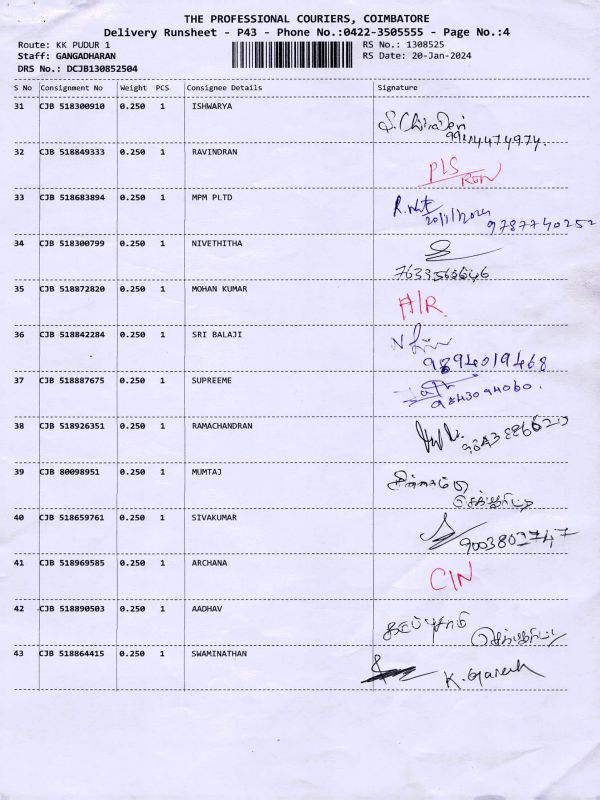 THE PROFESSIONAL COURIERS, COIMBATORE
Delivery Runsheet - P43 - Phone No.:0422-3505555 - Page No.:4
Route: KK PUDUR 1 RS No.: 1308525
Staff: GANGADHARAN RS Date: 20-Jan-2024
DRS No.: DCJB130852504
S No Consignment No Weight PCS Consignee Details Signature
31 CJB 518300910 0.250 1 ISHWARYA
32 CJB 518849333 0.250 1 RAVINDRAN
33 CJB 518683894 0.250 1 MPM PLTD
20/1/2024
9787740252
34 CJB 518300799 0.250 1 NIVETHITHA
35 CJB 518872820 0.250 1 MOHAN KUMAR
36 CJB 518842284 0.250 1 SRI BALAJI
9894019468
37 CJB 518887675 0.250 1 SUPREEME
9843094060.
38 CJB 518926351 0.250 1 RAMACHANDRAN
39 CJB 80098951 0.250 1 MUMTAJ
40 CJB 518659761 0.250 1 SIVAKUMAR
9003802747
41 CJB 518969585 0.250 1 ARCHANA
42 CJB 518890503 0.250 1 AADHAV
43 CJB 518864415 0.250 1 SWAMINATHAN
K. Ganesh